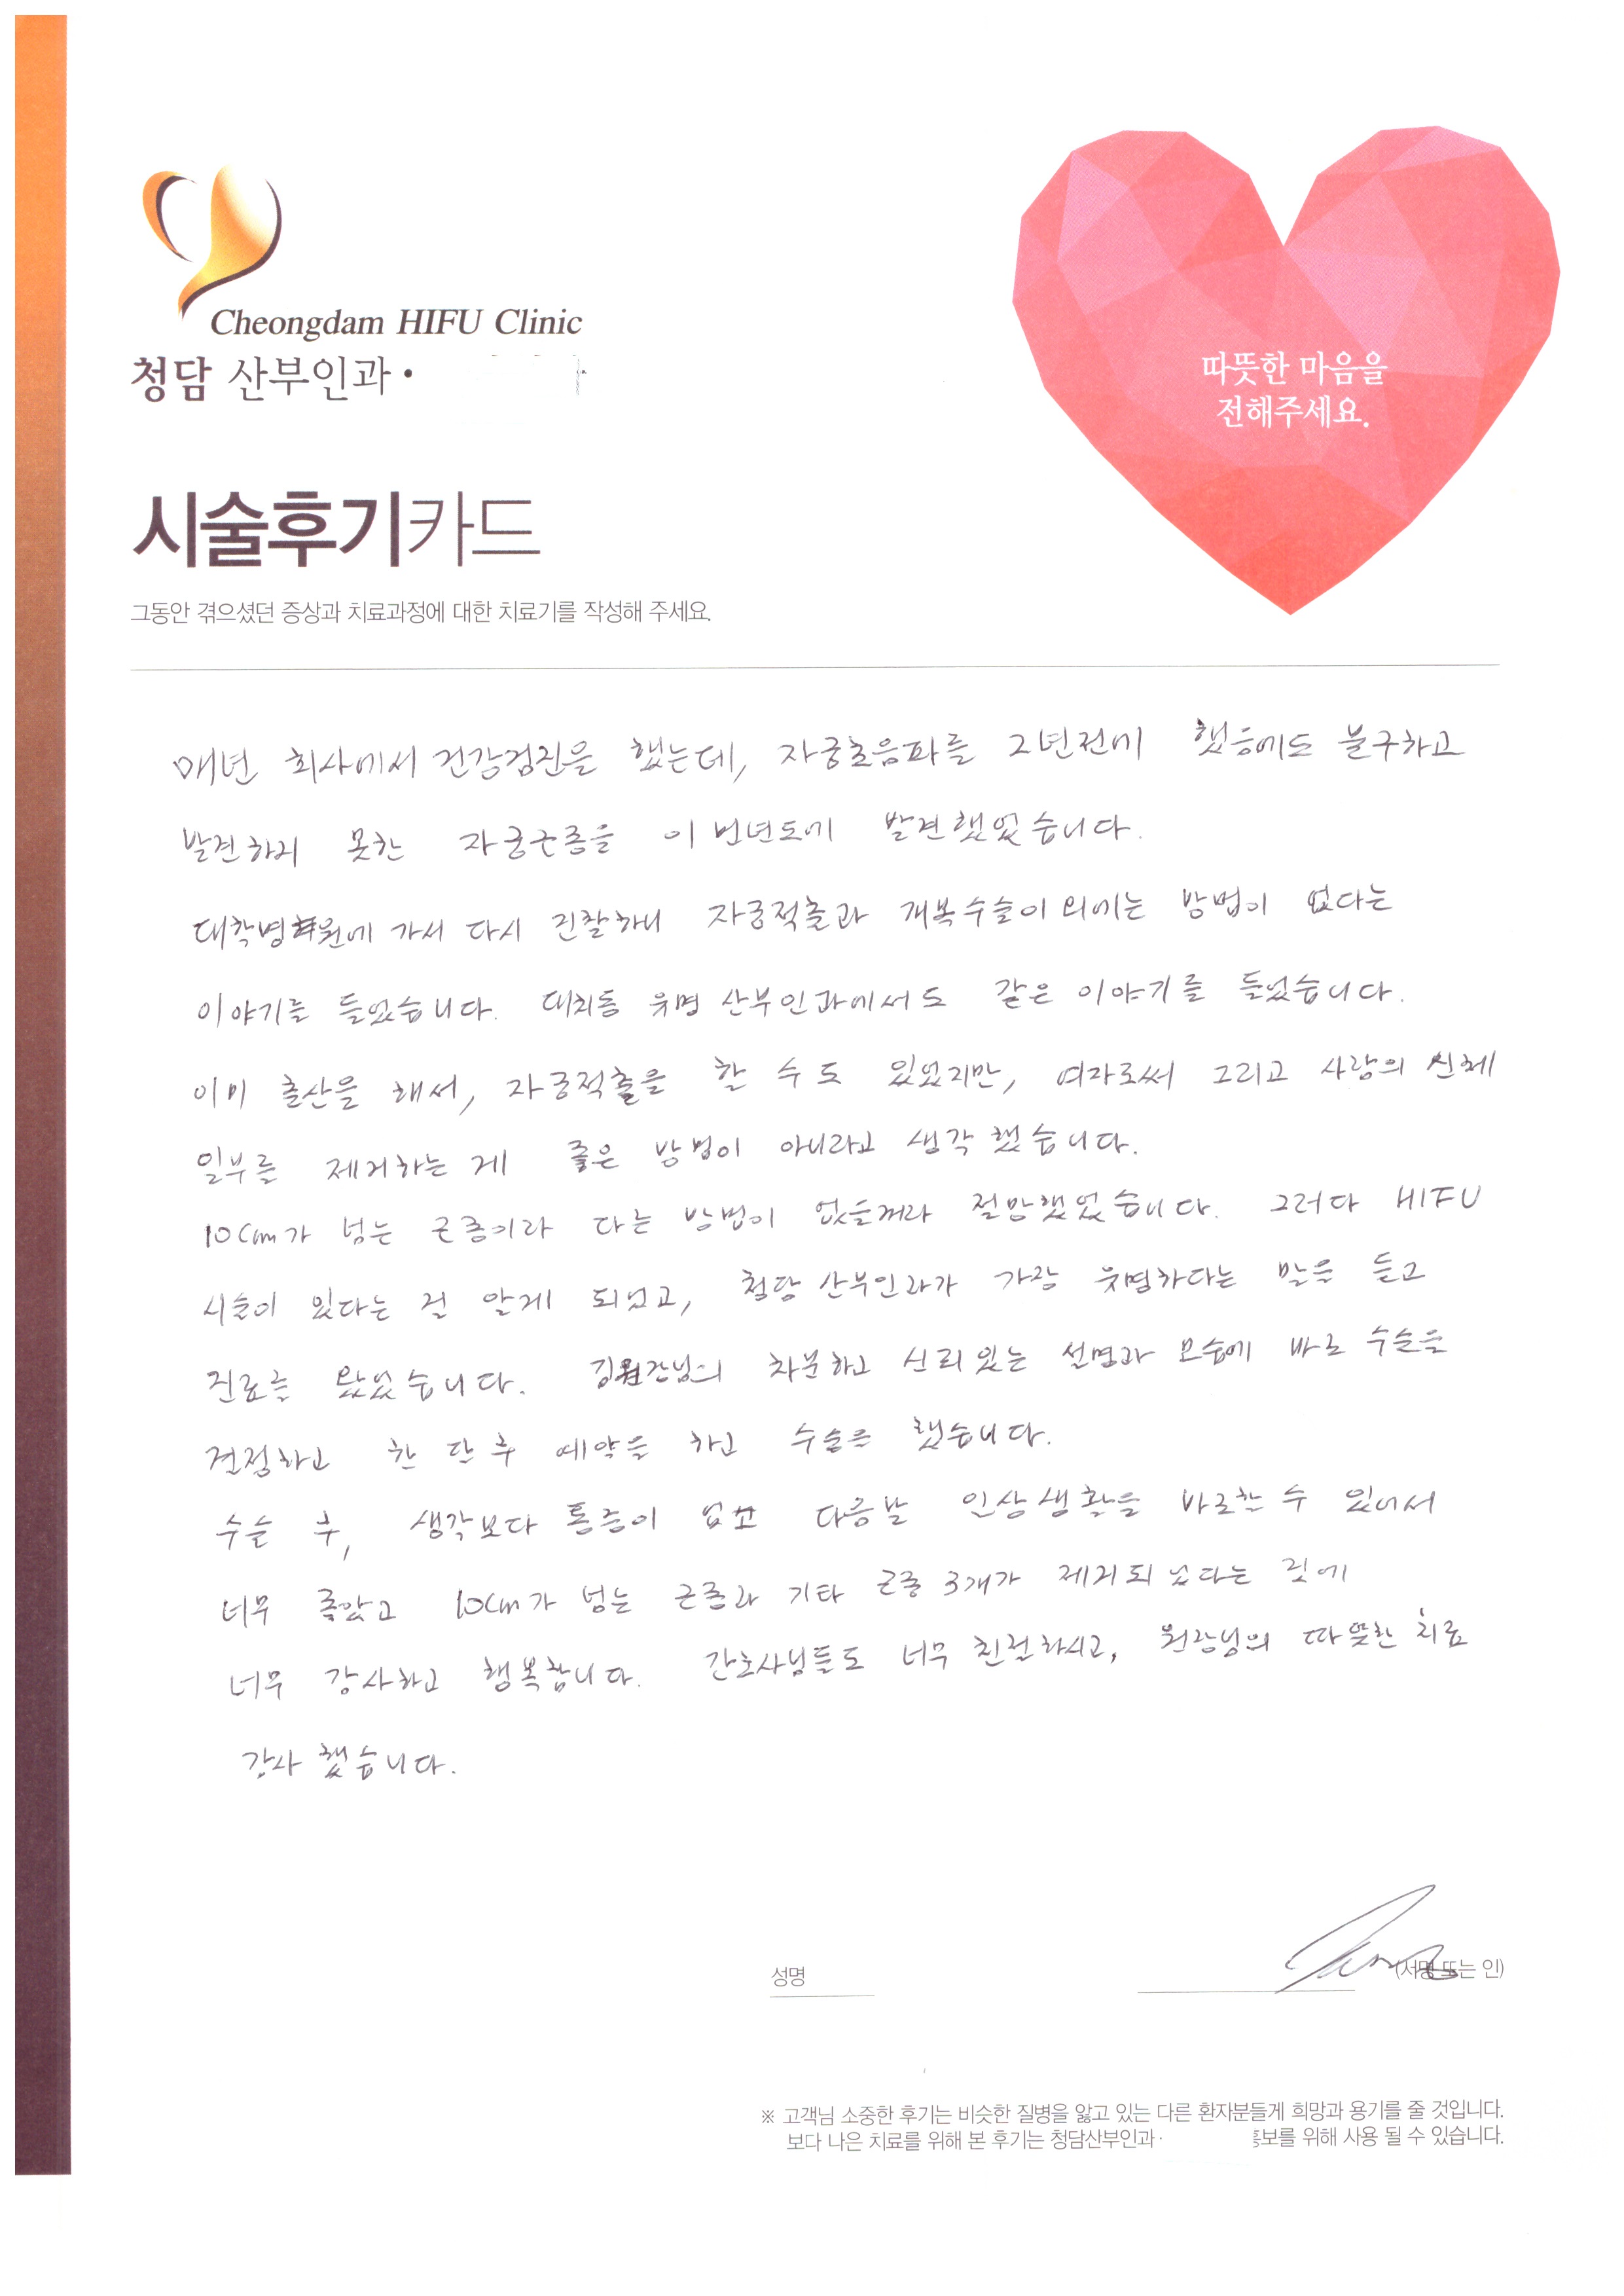 Cheongdam HIFU Clinic
청담 산부인과·
따뜻한 마음을
전해주세요.
시술후기카드
그동안 겪으셨던 증상과 치료과정에 대한 치료기를 작성해 주세요.
매년 회사에서 건강검진을 했는데, 자궁초음파를 2년전에 했음에도 불구하고
발견하지 못한 자궁근종을 이번년도에 발견했었습니다.
대학병원에 가서 다시 진찰하니 자궁적출과 개복수술이외에는 방법이 없다는
이야기를 들었습니다. 대치동 유명 산부인과에서도 같은 이야기를 들었습니다.
이미 출산을 해서, 자궁적출을 할 수도 있었지만, 여자로써 그리고 사람의 신체
일부를 제거하는 게 좋은 방법이 아니라고 생각했습니다.
10cm가 넘는 근종이라 다른 방법이 없을꺼라 절망했었습니다. 그러다 HIFU
시술이 있다는 걸 알게 되었고, 청담 산부인과가 가장 유명하다는 말을 듣고
진료를 왔었습니다. 김원장님의 차분하고 신뢰있는 설명과 모습에 바로 수술을
결정하고 한 달 후 예약을 하고 수술을 했습니다.
수술 후, 생각보다 통증이 없고 다음날 일상생활을 바로할 수 있어서
너무 좋았고 10cm가 넘는 근종과 기타 근종 3개가 제거되었다는 것에
너무 감사하고 행복합니다. 간호사님들도 너무 친절하시고, 원장님의 따뜻한 치료
감사했습니다.
성명 (서명 또는 인)
※ 고객님 소중한 후기는 비슷한 질병을 앓고 있는 다른 환자분들게 희망과 용기를 줄 것입니다.
보다 나은 치료를 위해 본 후기는 청담산부인과· 홍보를 위해 사용 될 수 있습니다.